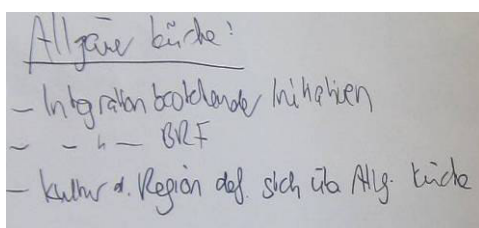 Allgäuer Küche:
- Integration bestehender Initiativen
- - " - BRF
- Kultur d. Region def. sich über Allg. Küche